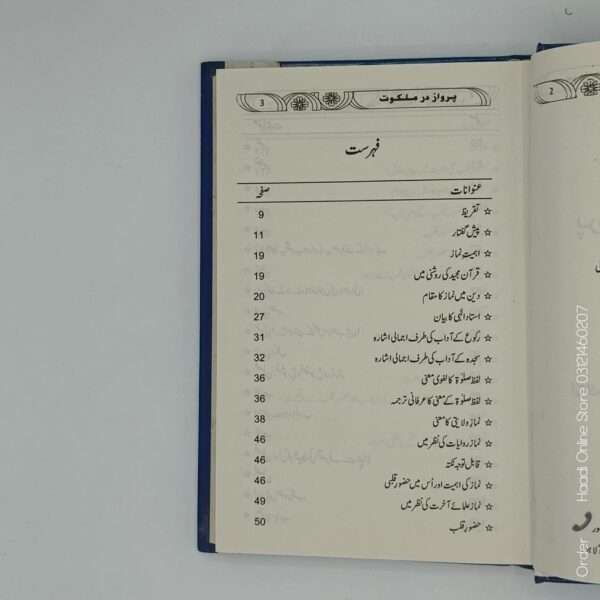 پرواز در ملکوت 3
فہرست
عنوانات صفحہ
☆ تقریظ 9
☆ پیش گفتار 11
☆ اہمیت نماز 19
☆ قرآن مجید کی روشنی میں 19
☆ دین میں نماز کا مقام 20
☆ استاد الٰہی کا بیان 27
☆ رکوع کے آداب کی طرف اجمالی اشارہ 31
☆ سجدہ کے آداب کی طرف اجمالی اشارہ 32
☆ لفظ صلوٰۃ کا لغوی معنی 36
☆ لفظ صلوٰۃ کے معنی کا عرفانی ترجمہ 36
☆ نماز ولایتی کا معنی 38
☆ نماز روایات کی نظر میں 46
☆ قابل توجہ نکتہ 46
☆ نماز کی اہمیت اور اُس میں حضور قلبی 46
☆ نماز علمائے آخرت کی نظر میں 49
☆ حضور قلب 50
2
Order Haadi Online Store 03121460207